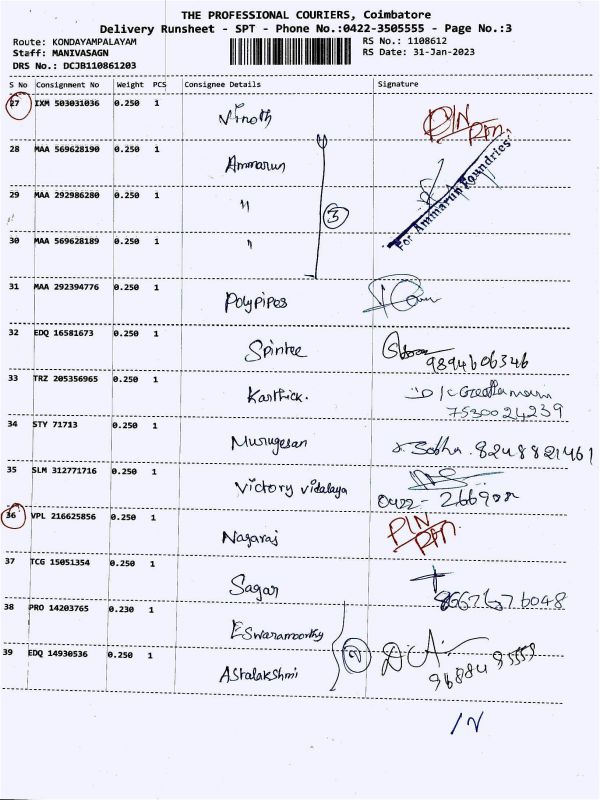 THE PROFESSIONAL COURIERS, Coimbatore
Delivery Runsheet - SPT - Phone No.:0422-3505555 - Page No.:3
Route: KONDAYAMPALAYAM RS No.: 1108612
Staff: MANIVASAGN RS Date: 31-Jan-2023
DRS No.: DCJB110861203
S No Consignment No Weight PCS Consignee Details Signature
27 IXM 503031036 0.250 1 Vinoth PIN RTN
28 MAA 569628190 0.250 1 Ammarun
For Ammarun Foundries
29 MAA 292986280 0.250 1 " 3
30 MAA 569628189 0.250 1 "
31 MAA 292394776 0.250 1 Polypipes
32 EDQ 16581673 0.250 1 Spintee 9894606346
33 TRZ 205356965 0.250 1 Karthick.
7530024239
34 STY 71713 0.250 1 Murugesan Sobha. 8248821461
35 SLM 312771716 0.250 1 Victory Vidalaya
0422-
36 VPL 216625856 0.250 1 Nagaraj PIN RTN
37 TCG 15051354 0.250 1 Sagar
38 PRO 14203765 0.230 1 Eswaramoorthy
39 EDQ 14930536 0.250 1 Astalakshmi 2